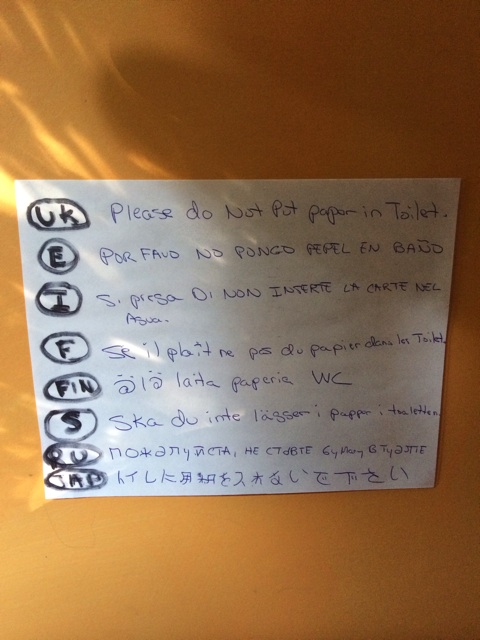 UK Please do Not Pot paper in Toilet.
E POR FAVO NO PONGO PEPEL EN BAÑO
I S. presa DI NON INTERTE LA CARTE NEL
Aqua.
F Se il plaît ne pas du papier dans les Toilet
FIN älä laita paperia WC
S Ska du inte lägger i papper i toaletten.
RU ПОЖАЛУЙСТА, НЕ СТАВТЕ бумагу В ТУАЛТЕ
JAP トイレに を入れないで下さい